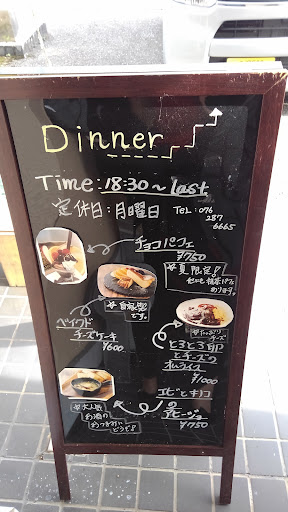 Dinner
Time: 18:30～last
定休日:月曜日 TEL: 076
287
6665
チョコパフェ
¥750
☆夏限定!
☆自家製
です。
ベイクド
チーズケーキ
¥600
チーズ
とろとろ卵
とチーズの
オムライス
¥1000
☆大人気
お酒の
おつまみに
どうぞ!
エビとキノコ
の
アヒージョ
¥750